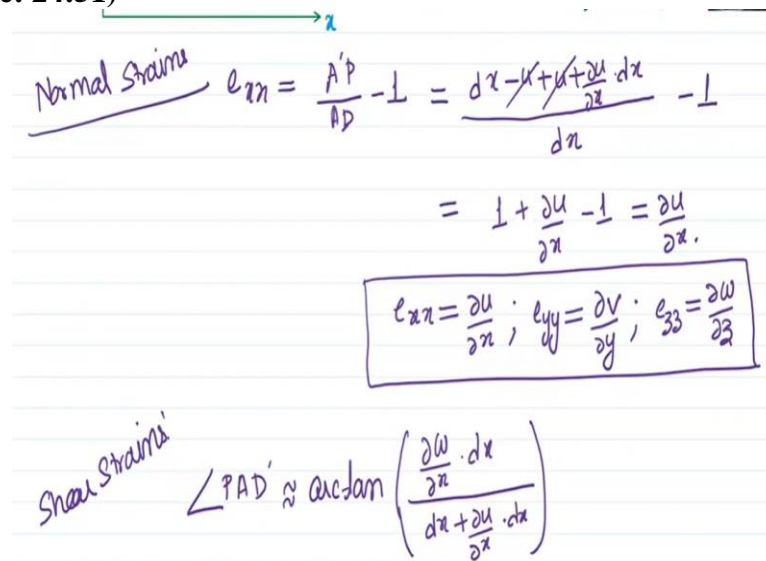 x
Normal Strains e_xx = A'P/AD - 1 = (dx - u + u + ∂u/∂x · dx)/dx - 1
= 1 + ∂u/∂x - 1 = ∂u/∂x.
e_xx = ∂u/∂x ; e_yy = ∂v/∂y ; e_33 = ∂w/∂3
Shear Strains ∠PAD' ≈ arctan ((∂w/∂x · dx)/(dx + ∂u/∂x · dx))